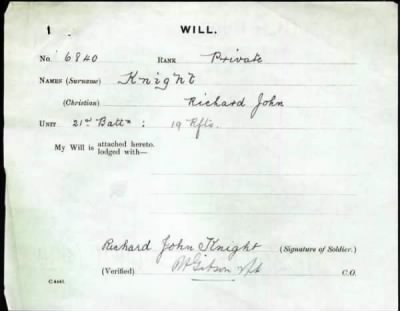 1 WILL.
No. 6840 RANK Private
NAMES (Surname) Knight
(Christian) Richard John
UNIT 21st Battn : 19 Rfts.
My Will is attached hereto.
lodged with—
Richard John Knight (Signature of Soldier.)
(Verified) Gibson C.O.